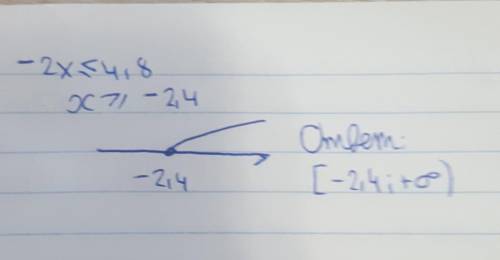 -2x ≤ 4,8
x ⩾ -2,4
-2,4
Ответ:
[-2,4; +∞)